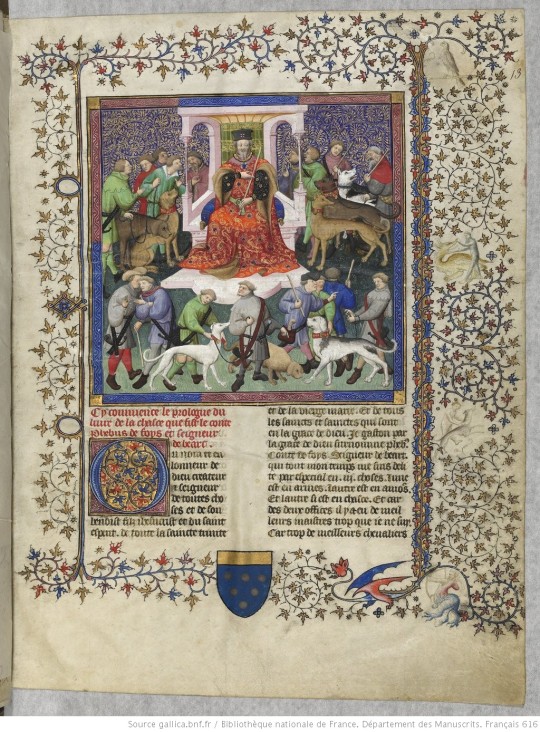 13
Cy commence le prologue du
liure de la chasse que fist le conte
phebus de foys et seigneur
de bearn.
Ou nom et en
lonneur de
dieu createur
et seigneur
de toutes cho
ses et de son
benoist filz ihesucrist et du saint
esperit. de toute la saincte trinite
et de la vierge marie. Et de tous
les sains et sainctes qui sont
en la grace de dieu. Je gaston par
la grace de dieu surnomme pheb
Conte de foys. Seigneur de bearn
qui tout mon temps me suis deli
te par especial en .iij. choses. Lune
est en armes. Lautre est en amours
Et lautre si est en chasce. Et car
des deux offices il y a eu de meil
leurs maistres trop que ie ne suy.
Car trop de meilleurs cheualiers
Source gallica.bnf.fr / Bibliothèque nationale de France, Département des Manuscrits, Français 616